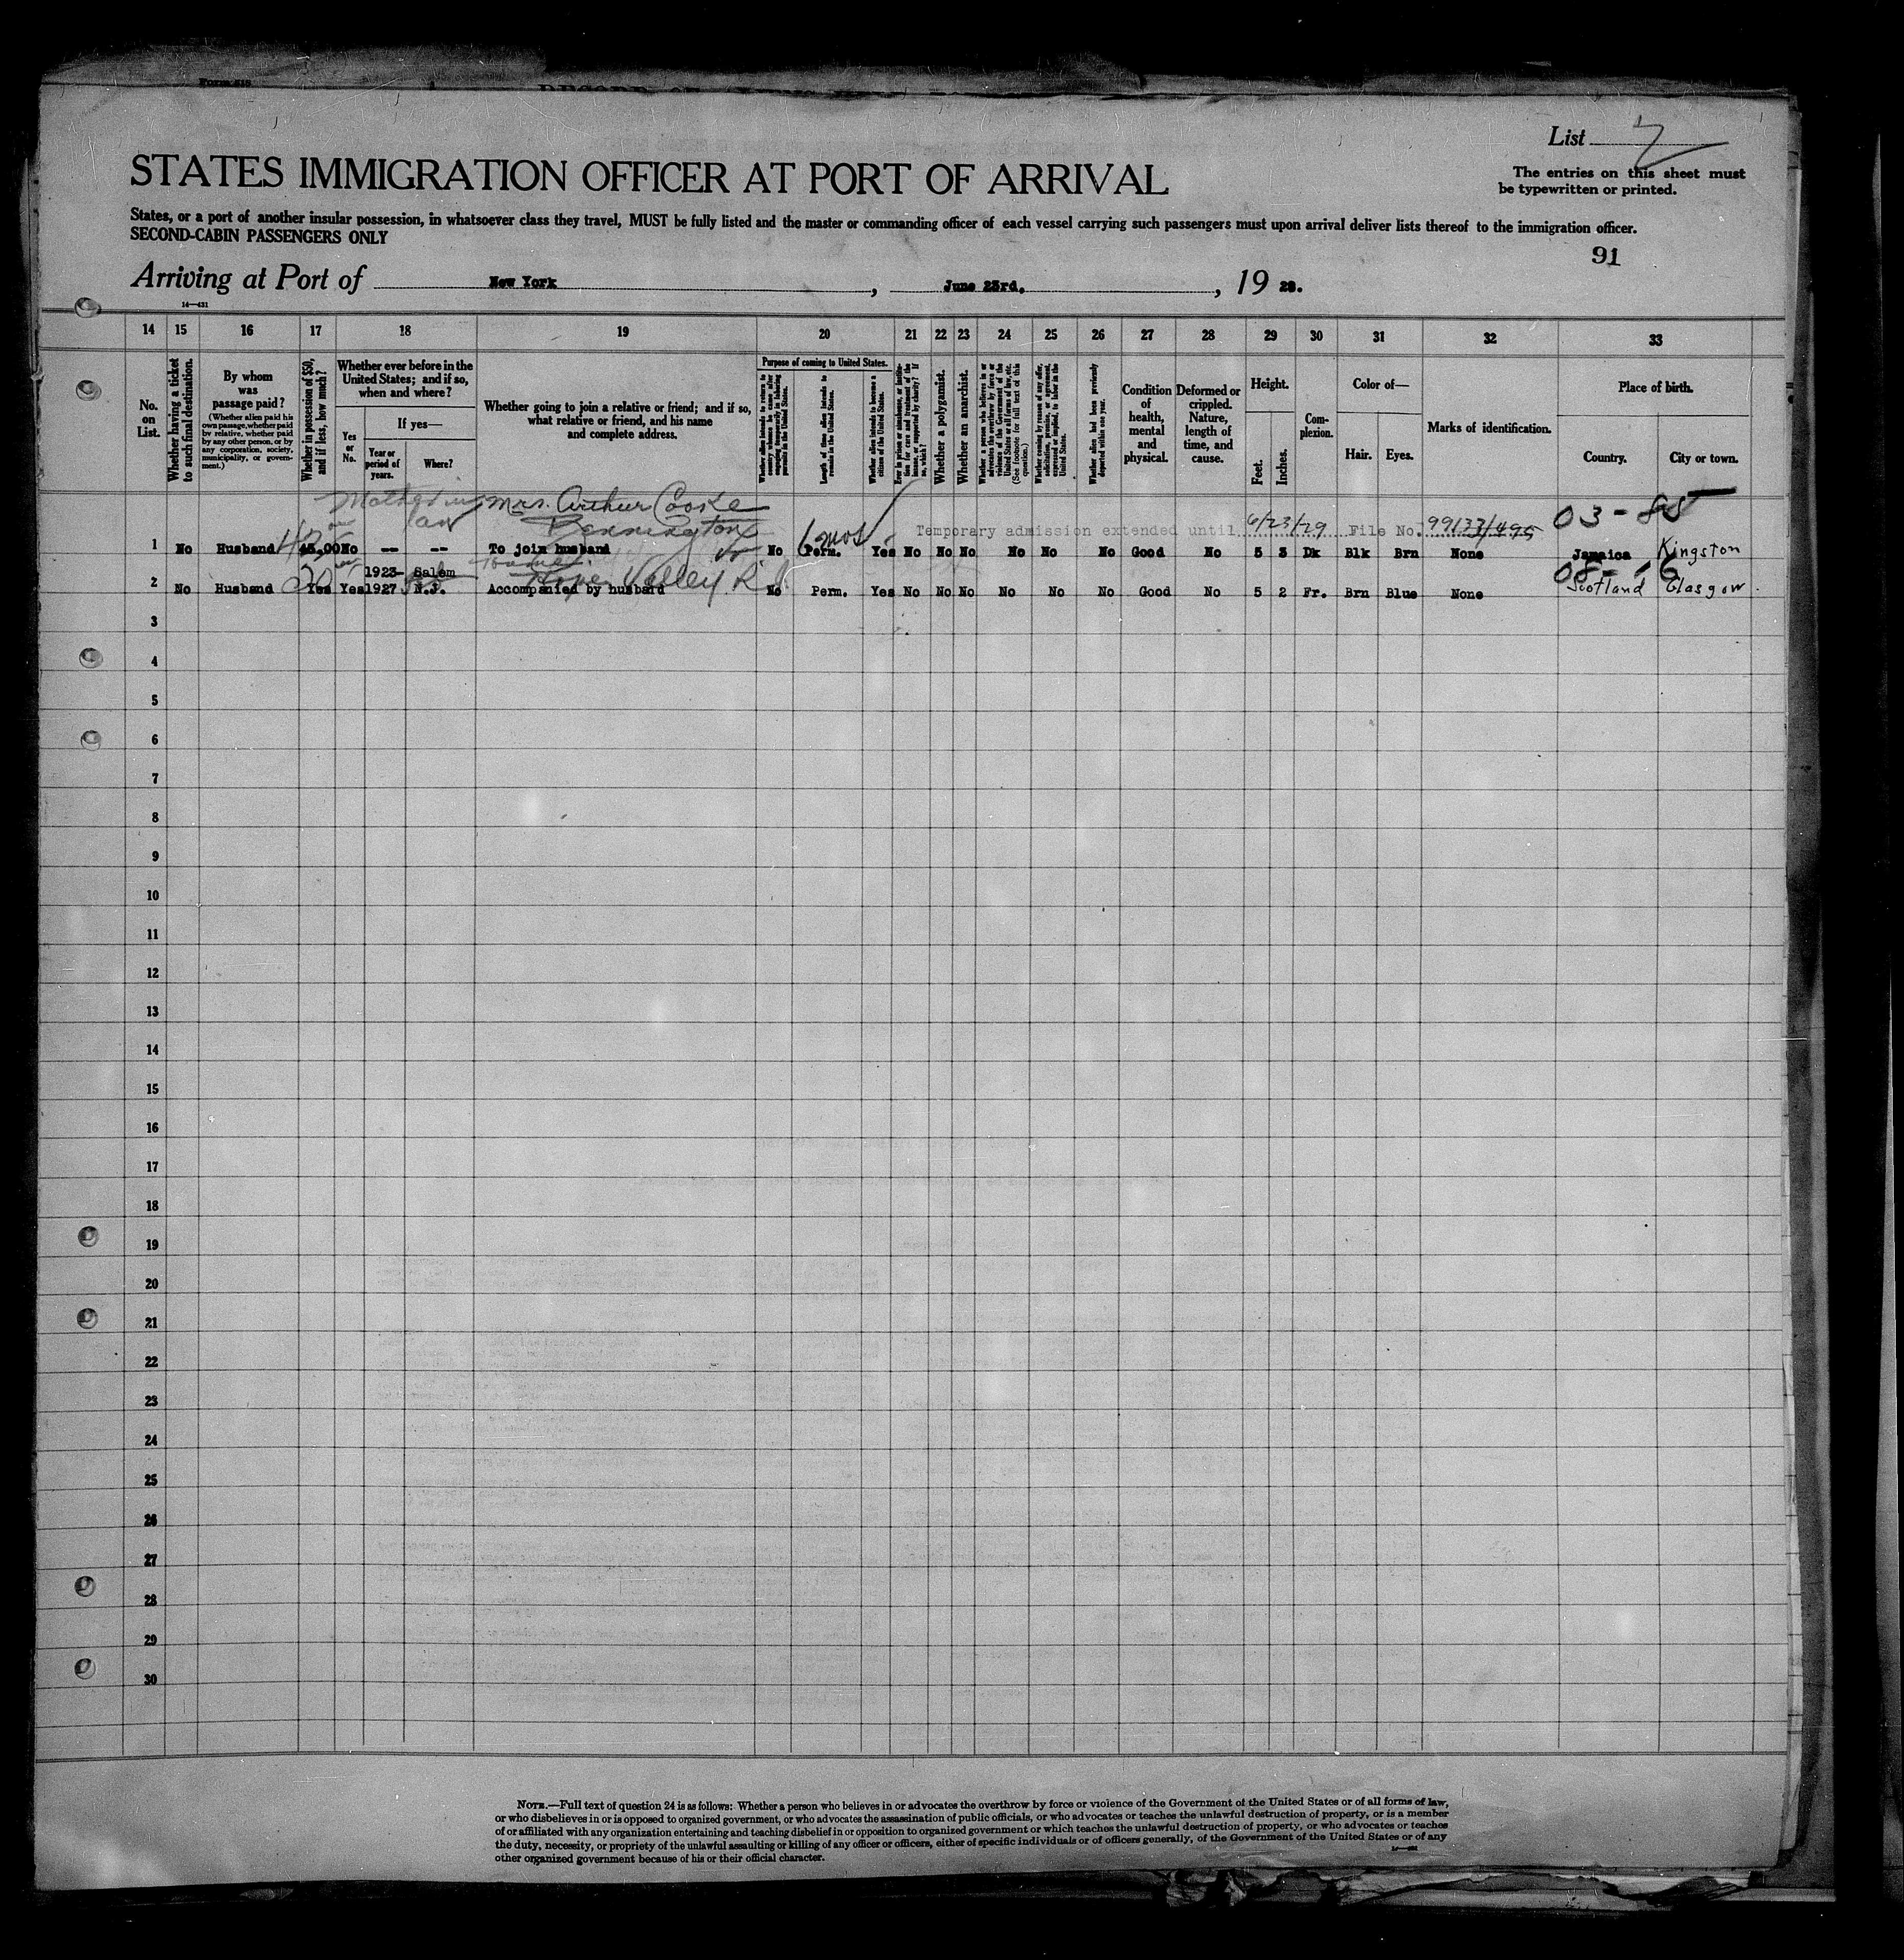 Form 518
List 7
STATES IMMIGRATION OFFICER AT PORT OF ARRIVAL
The entries on this sheet must
be typewritten or printed.
States, or a port of another insular possession, in whatsoever class they travel, MUST be fully listed and the master or commanding officer of each vessel carrying such passengers must upon arrival deliver lists thereof to the immigration officer.
SECOND-CABIN PASSENGERS ONLY
91
Arriving at Port of New York, June 23rd., 19 28.
14—431
14 15 16 17 18 19 20 21 22 23 24 25 26 27 28 29 30 31 32 33
No. on List.
Whether having a ticket to such final destination.
By whom was passage paid?
(Whether alien paid his own passage, whether paid by relative, whether paid by any other person, or by any corporation, society, municipality, or government.)
Whether in possession of $50, and if less, how much?
Whether ever before in the United States; and if so, when and where?
Yes or No.
If yes—
Year or period of years.
Where?
Whether going to join a relative or friend; and if so, what relative or friend, and his name and complete address.
Purpose of coming to United States.
Whether alien intends to return to country whence he came after engaging temporarily in laboring pursuits in the United States.
Length of time alien intends to remain in the United States.
Whether alien intends to become a citizen of the United States.
Ever in prison or almshouse, or institution for care and treatment of the insane, or supported by charity? If so, which?
Whether a polygamist.
Whether an anarchist.
Whether a person who believes in or advocates the overthrow by force or violence of the Government of the United States or all forms of law, etc. (See footnote for full text of this question.)
Whether coming by reason of any offer, solicitation, promise, or agreement, expressed or implied, to labor in the United States.
Whether alien had been previously deported within one year.
Condition of health, mental and physical.
Deformed or crippled. Nature, length of time, and cause.
Height.
Feet.
Inches.
Complexion.
Color of—
Hair.
Eyes.
Marks of identification.
Place of birth.
Country.
City or town.
Mother in law Mrs. Arthur Cooke
Pennington
6 mos
Temporary admission extended until 6/23/29 File No. 99133/495
03 -
1 No Husband 45,00 No -- -- To join husband No Perm. Yes No No No No No No Good No 5 3 Dk Blk Brn None Jamaica Kingston
1923- Salem
Hope Valley R.I.
2 No Husband Yes Yes 1927 N.J. Accompanied by husband No Perm. Yes No No No No No No Good No 5 2 Fr. Brn Blue None Scotland Glasgow
3
4
5
6
7
8
9
10
11
12
13
14
15
16
17
18
19
20
21
22
23
24
25
26
27
28
29
30
NOTE.—Full text of question 24 is as follows: Whether a person who believes in or advocates the overthrow by force or violence of the Government of the United States or of all forms of law,
or who disbelieves in or is opposed to organized government, or who advocates the assassination of public officials, or who advocates or teaches the unlawful destruction of property, or is a member
of or affiliated with any organization entertaining and teaching disbelief in or opposition to organized government or which teaches the unlawful destruction of property, or who advocates or teaches
the duty, necessity, or propriety of the unlawful assaulting or killing of any officer or officers, either of specific individuals or of officers generally, of the Government of the United States or of any
other organized government because of his or their official character.